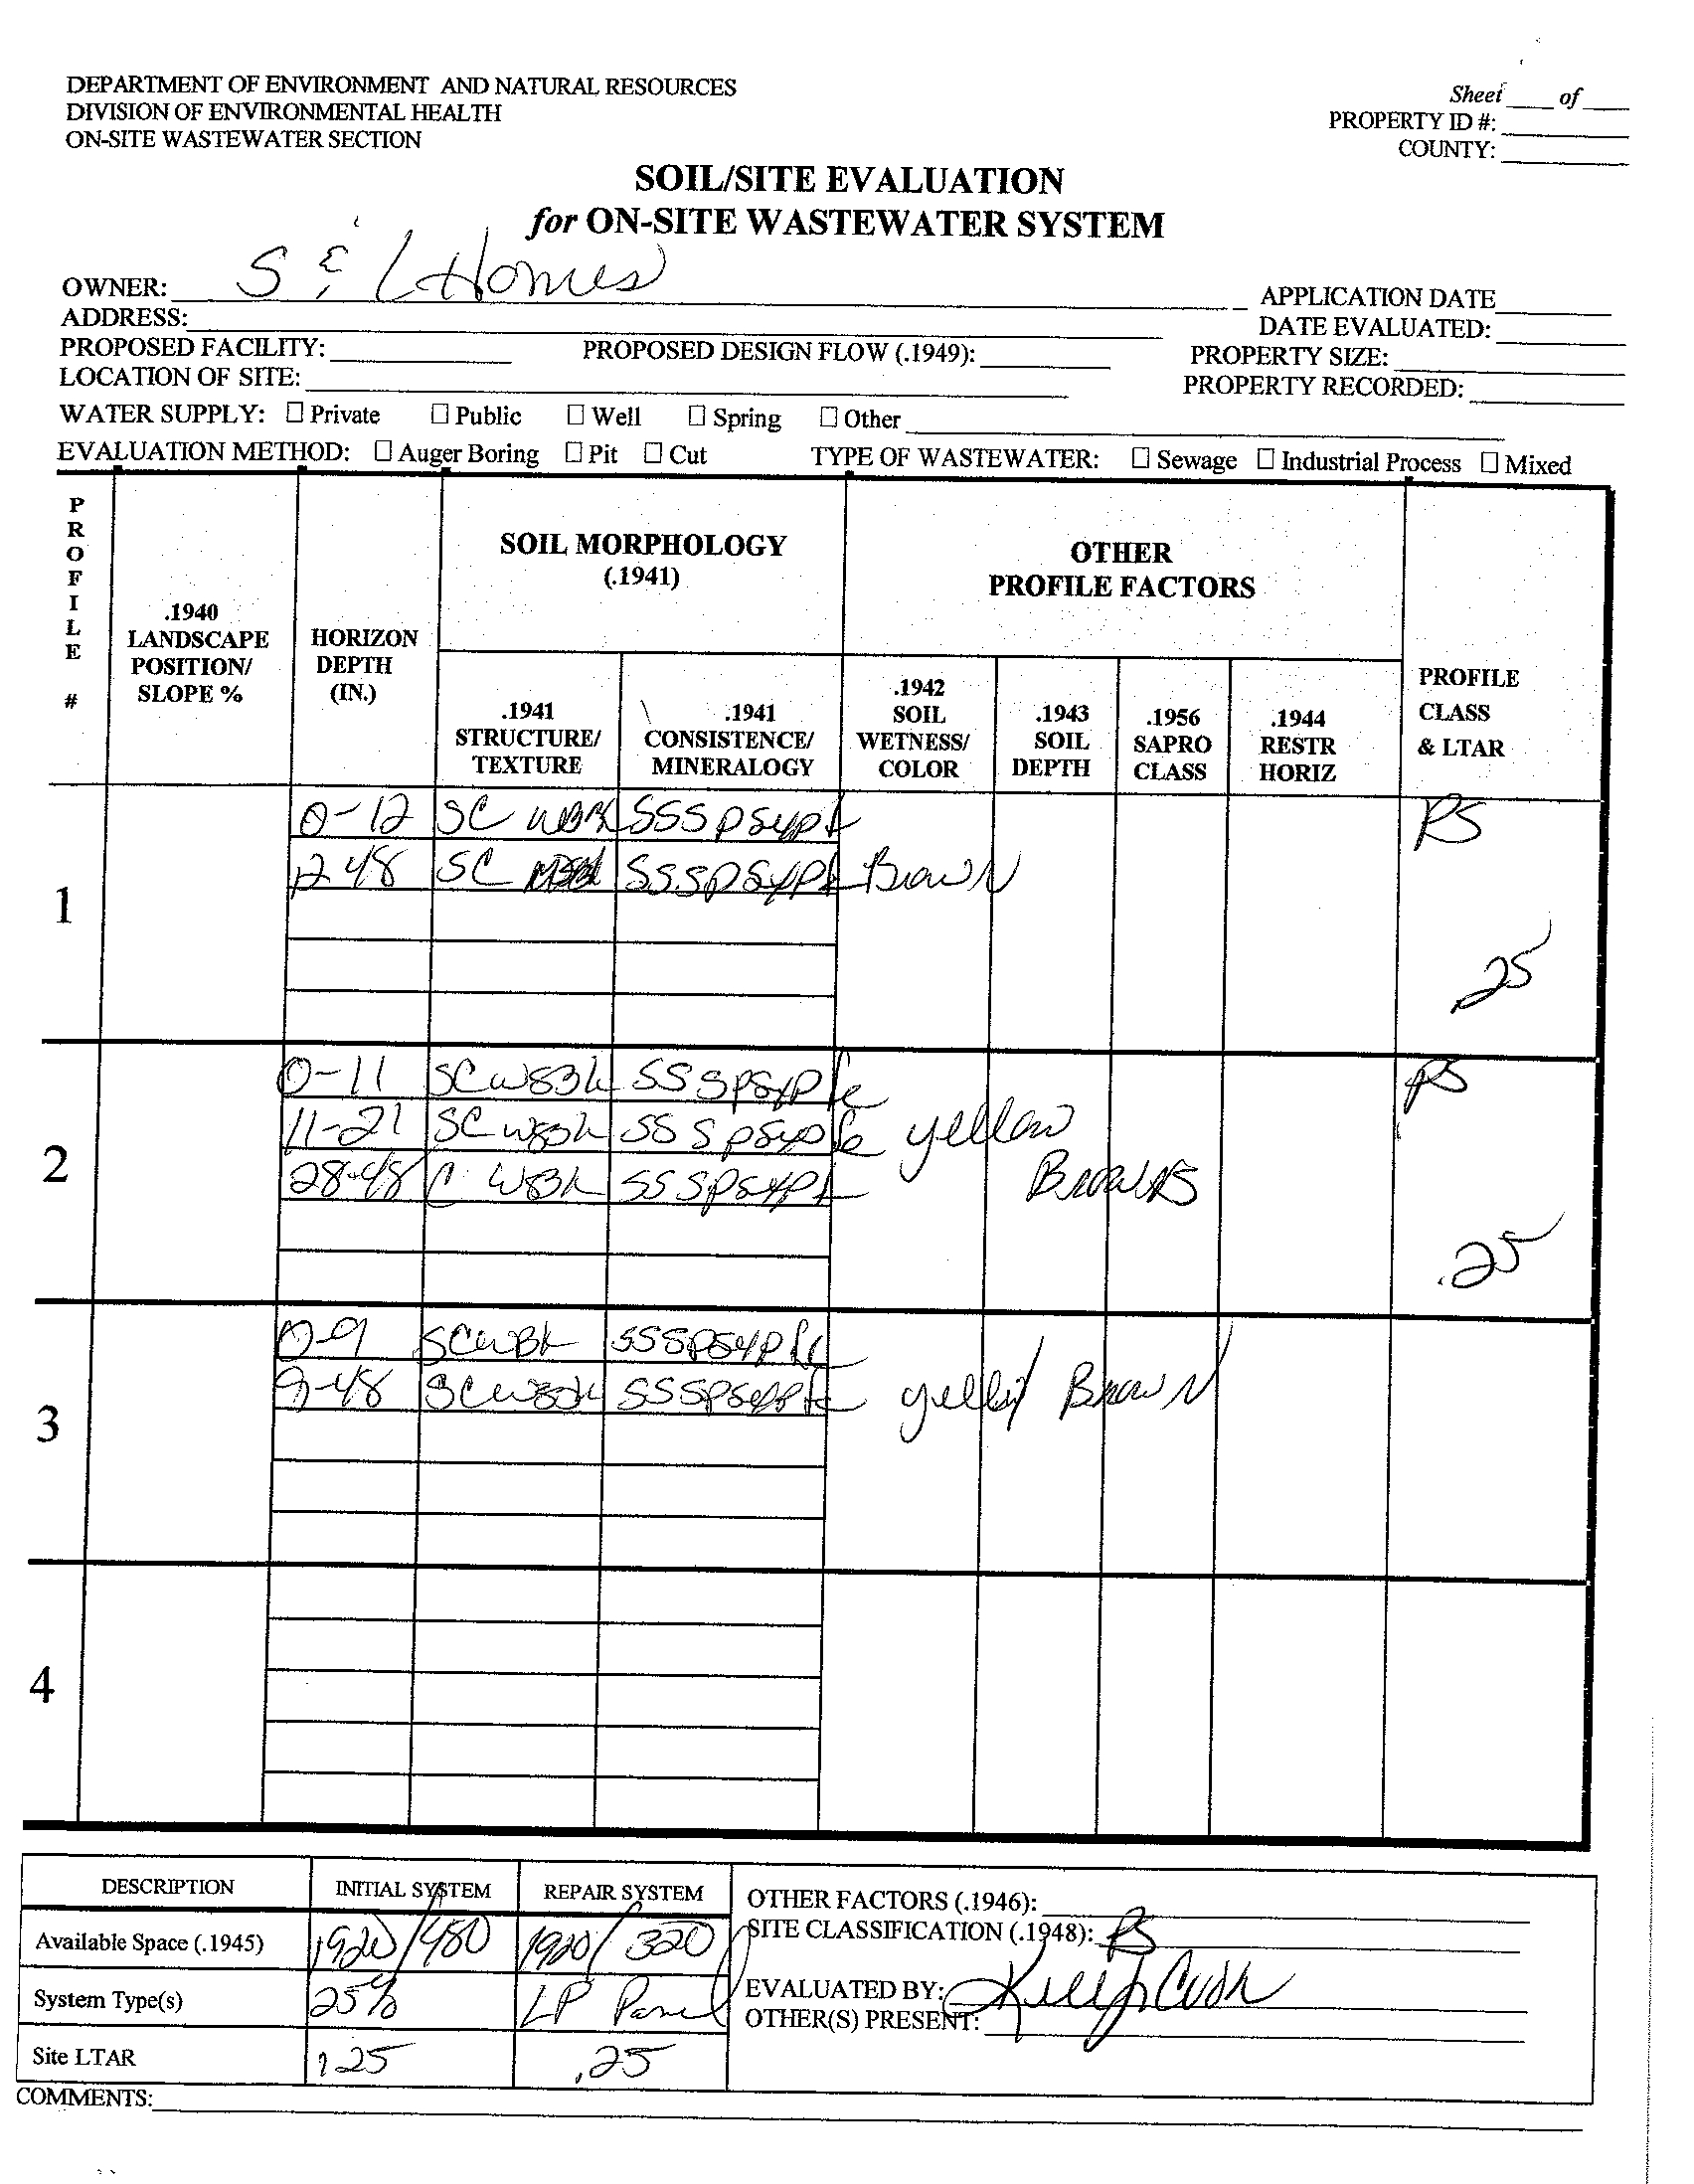 Sheet ____ of ____
DEPARTMENT OF ENVIRONMENT AND NATURAL RESOURCES
DIVISION OF ENVIRONMENTAL HEALTH
ON-SITE WASTEWATER SECTION
PROPERTY ID #:
COUNTY:
SOIL/SITE EVALUATION
for ON-SITE WASTEWATER SYSTEM
OWNER: S & L Homes
APPLICATION DATE
ADDRESS:
DATE EVALUATED:
PROPOSED FACILITY: PROPOSED DESIGN FLOW (.1949): PROPERTY SIZE:
LOCATION OF SITE: PROPERTY RECORDED:
WATER SUPPLY: ☐ Private ☐ Public ☐ Well ☐ Spring ☐ Other
EVALUATION METHOD: ☐ Auger Boring ☐ Pit ☐ Cut TYPE OF WASTEWATER: ☐ Sewage ☐ Industrial Process ☐ Mixed
PROFILE #
.1940 LANDSCAPE POSITION/ SLOPE %
HORIZON DEPTH (IN.)
SOIL MORPHOLOGY (.1941)
.1941 STRUCTURE/ TEXTURE
.1941 CONSISTENCE/ MINERALOGY
OTHER PROFILE FACTORS
.1942 SOIL WETNESS/ COLOR
.1943 SOIL DEPTH
.1956 SAPRO CLASS
.1944 RESTR HORIZ
PROFILE CLASS & LTAR
1
0-12 SC WBK SSSP PS
12-48 SC SSSP Brown
.25
2
0-11 SC WSBK SS SP PS
11-21 SC WSBK SS SP yellow
28-48 C WBK SS SP Brown
.25
3
0-9 SC WBK SSSP
9-48 SC WSBK SSSP yellow Brown
4
DESCRIPTION INITIAL SYSTEM REPAIR SYSTEM
Available Space (.1945) 1920/480 1920/320
System Type(s) 25% LP Panel
Site LTAR .25 .25
OTHER FACTORS (.1946):
SITE CLASSIFICATION (.1948): PS
EVALUATED BY:
OTHER(S) PRESENT:
COMMENTS: